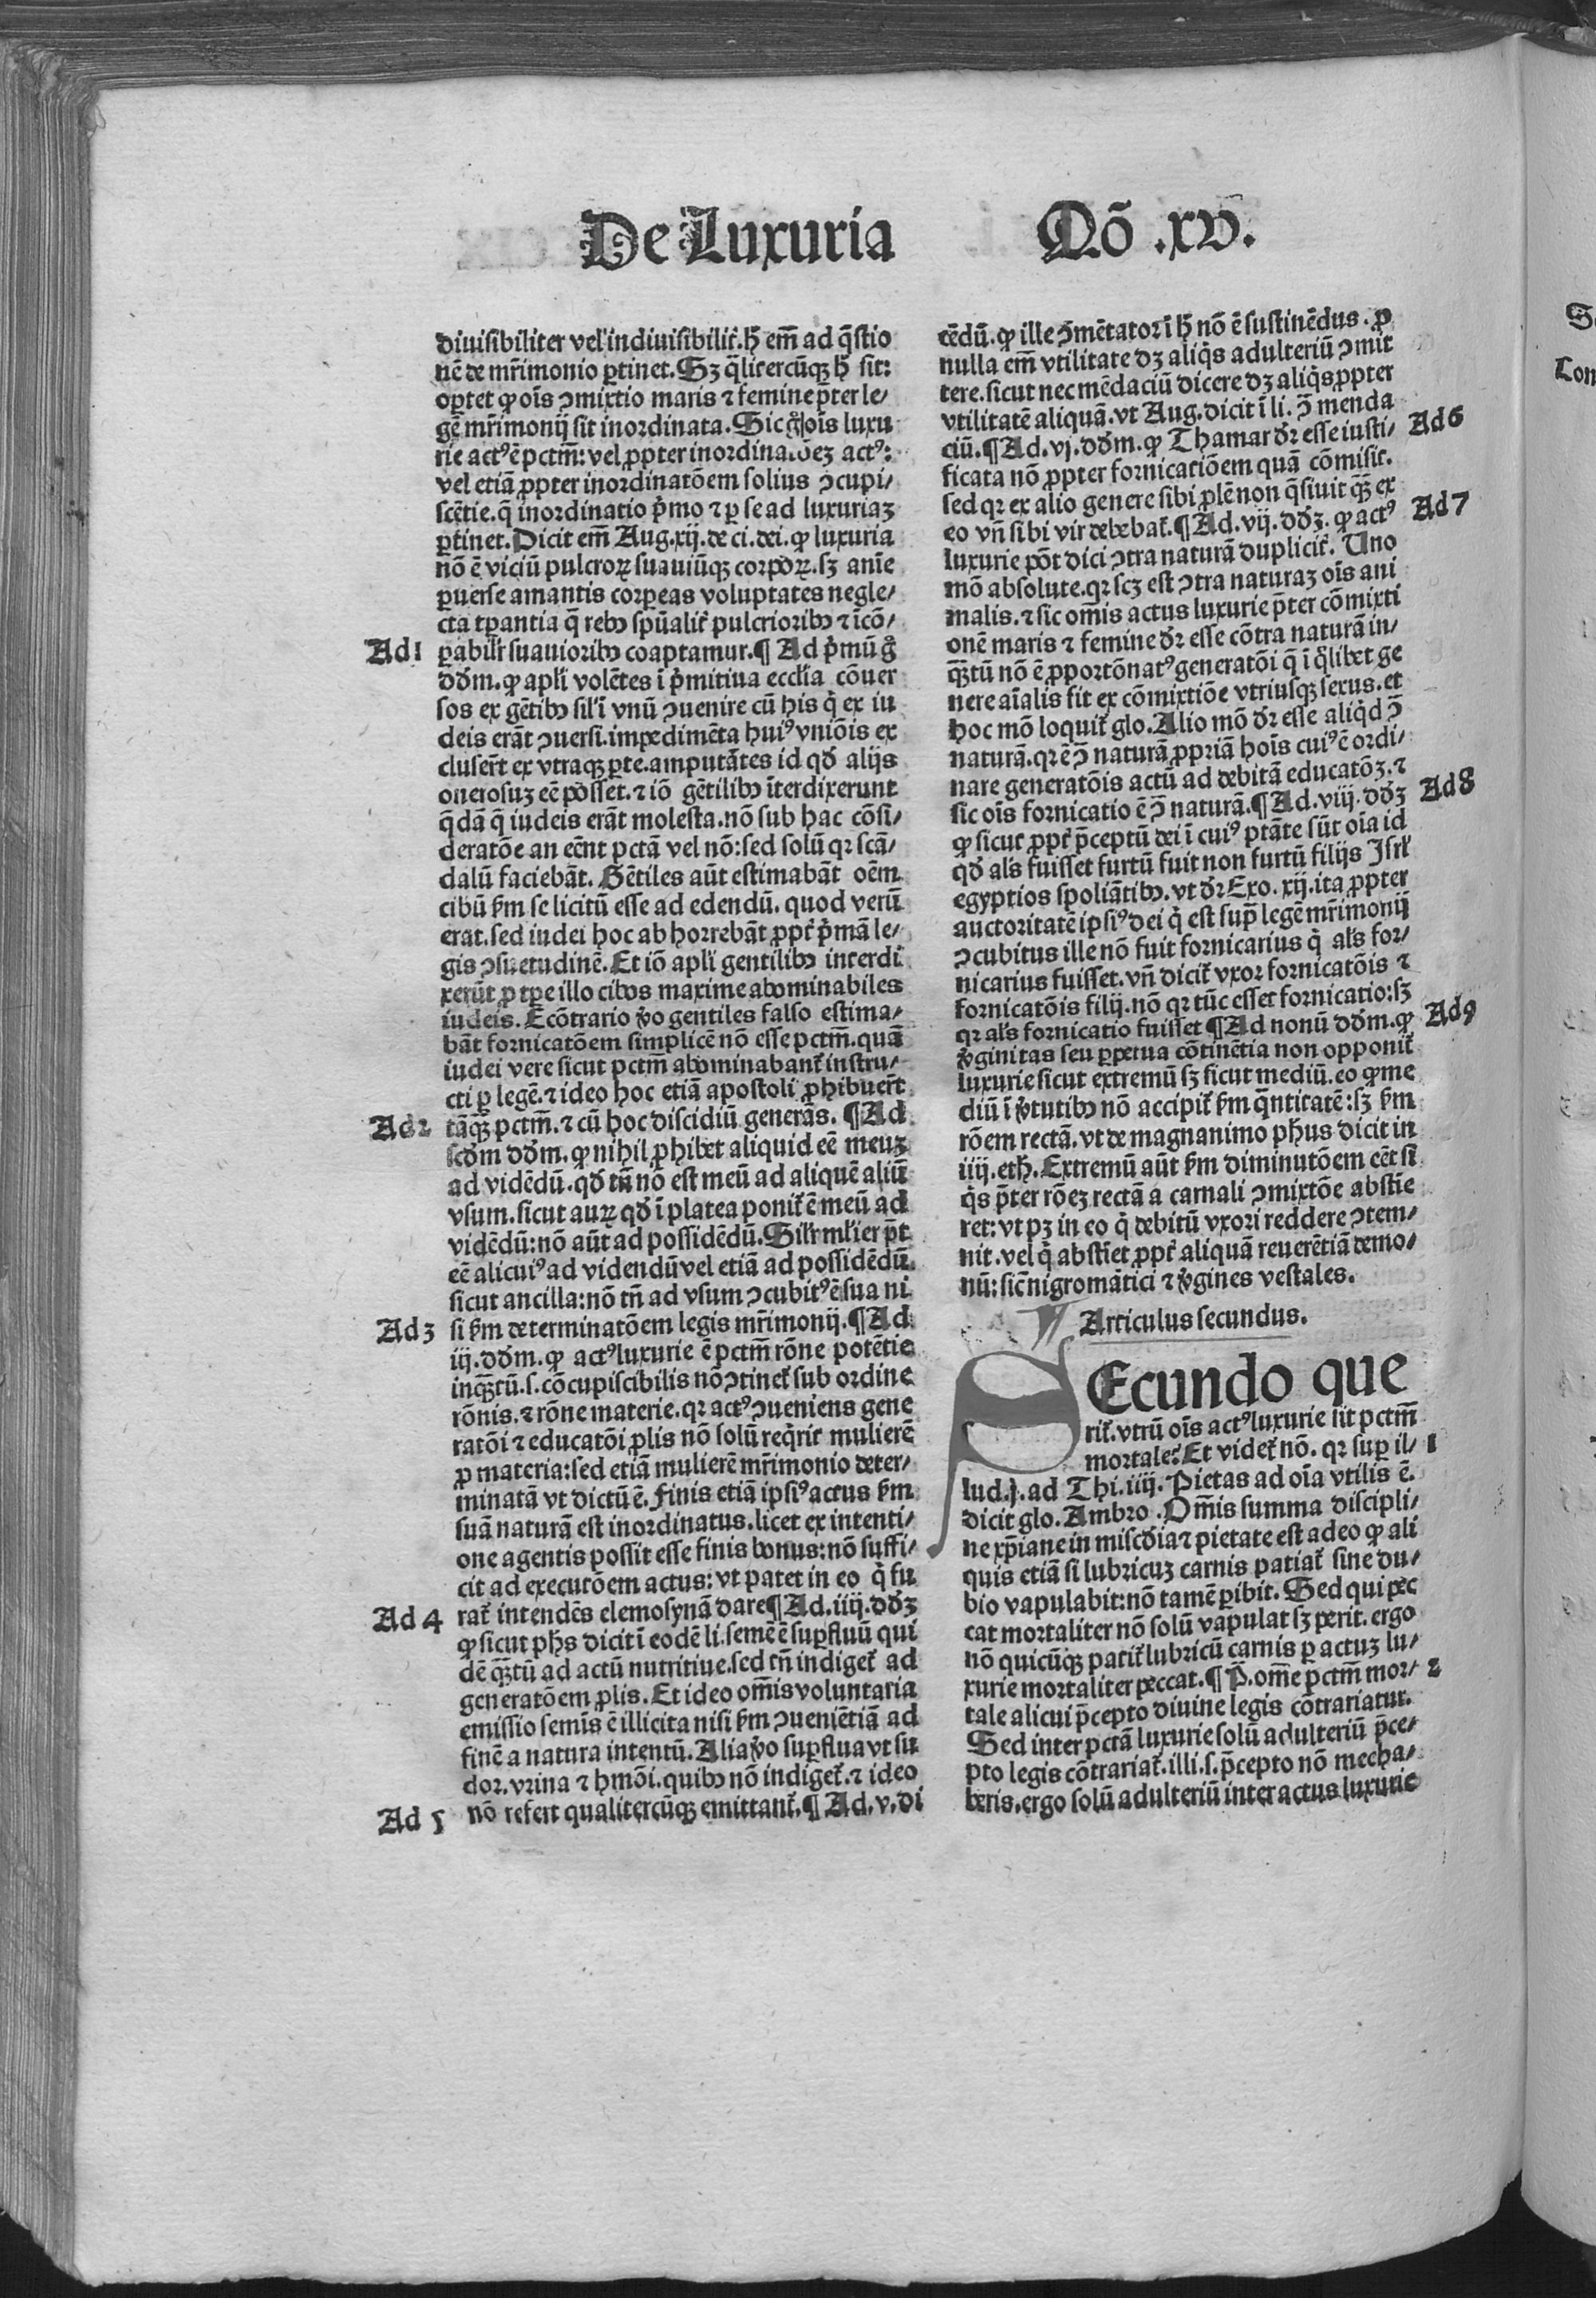 De Luxuria
Qõ .xv.
diuisibiliter vel indiuisibilit̃. h̃ em̃ ad q̃stio
nẽ de mr̃imonio ꝑtinet. Sꝫ q̃litercũqꝫ h̃ sit:
oꝑtet ꝙ oĩs ꝯmixtio maris ⁊ femine p̃ter le/
gẽ mr̃imonij sit inordinata. Sic g̊ oĩs luxu
rie actꝰ ẽ pctm̃: vel ꝓpter inordinatõeꝫ actꝰ:
vel etiã ꝓpter inordinatõem solius ꝯcupi/
scẽtie. q̃ inordinatio p̃mo ⁊ ꝑ se ad luxuriaꝫ
ꝑtinet. Dicit em̃ Aug. xij. de ci. dei. ꝙ luxuria
nõ ẽ viciũ pulcroꝝ suauiũqꝫ corpoꝝ. sꝫ anĩe
ꝑuerse amantis corꝑeas voluptates negle/
cta tꝑantia q̃ rebꝰ spũalit̃ pulcrioribꝰ ⁊ icõ/
Ad 1 ꝑabilr̃ suauioribꝰ coaptamur. ¶ Ad p̃mũ g̊
dd̃m. ꝙ apli volẽtes ĩ p̃mitiua eccl̃ia cõuer
sos ex gẽtibꝰ sil̃i vnũ ꝯuenire cũ his q̃ ex iu
deis erãt ꝯuersi. impedimẽta huiꝰ vniõis ex
cluser̃t ex vtraqꝫ ꝑte. amputãtes id qd̃ alijs
onerosuꝫ eẽ posset. ⁊ iõ gẽtilibꝰ ĩterdixerunt
q̃dã q̃ iudeis erãt molesta. nõ sub hac cõsi/
deratõe an eẽnt pctã vel nõ: sed solũ qꝛ scã/
dalũ faciebãt. Gẽtiles aũt estimabãt oẽm
cibũ ẜm se licitũ esse ad edendũ. quod verũ
erat. sed iudei hoc abhorrebãt ꝓpt̃ p̃mã le/
gis ꝯsuetudinẽ. Et iõ apli gentilibꝰ interdi
xerũt ꝓ tꝑe illo cibos maxime abominabiles
iudeis. Ecõtrario v̾o gentiles falso estima/
bãt fornicatõem simplicẽ nõ esse pctm̃. quã
iudei vere sicut pctm̃ abominabant̃ instru/
cti ꝑ legẽ. ⁊ ideo hoc etiã apostoli ꝓhibuer̃t
Ad 2 tãqꝫ pctm̃. ⁊ cũ hoc discidiũ generãs. ¶ Ad
scd̃m dd̃m. ꝙ nihil ꝓhibet aliquid eẽ meuꝫ
ad vidẽdũ. qd̃ tñ nõ est meũ ad aliquẽ aliũ
vsum. sicut auꝝ qd̃ ĩ platea ponit̃ ẽ meũ ad
vidẽdũ: nõ aũt ad possidẽdũ. Silr̃ ml̃ier p̃t
eẽ alicuiꝰ ad videndũ vel etiã ad possidẽdũ.
sicut ancilla: nõ tñ ad vsum ꝯcubitꝰ ẽ sua ni
Ad 3 si ẜm determinatõem legis mr̃imonij. ¶ Ad
iij. dd̃m. ꝙ actꝰ luxurie ẽ pctm̃ rõne potẽtie
inqꝫtũ. s. cõcupiscibilis nõ ꝯtinet̃ sub ordine
rõnis. ⁊ rõne materie. qꝛ actꝰ ꝯueniens gene
ratõi ⁊ educatõi ꝓlis nõ solũ req̃rit mulierẽ
ꝓ materia: sed etiã mulierẽ mr̃imonio deter/
minatã vt dictũ ẽ. Finis etiã ipsiꝰ actus ẜm
suã naturã est inordinatus. licet ex intenti/
one agentis possit esse finis bonus: nõ suffi/
cit ad executõem actus: vt patet in eo q̃ fu
Ad 4 rat̃ intendẽs elemosynã dare ¶ Ad. iiij. dd̃ꝫ
ꝙ sicut phs̃ dicit ĩ eodẽ li. semẽ ẽ suꝑfluũ qui
dẽ qꝫtũ ad actũ nutritiue. sed tñ indiget̃ ad
generatõem ꝓlis. Et ideo om̃is voluntaria
emissio semĩs ẽ illicita nisi ẜm ꝯueniẽtiã ad
finẽ a natura intentũ. Alia v̾o suꝑflua vt su
dor. vrina ⁊ hmõi. quibꝰ nõ indiget̃. ⁊ ideo
Ad 5 nõ refert qualitercũqꝫ emittant̃. ¶ Ad. v. di
cẽdũ. ꝙ ille ꝯmẽtator ĩ h̃ nõ ẽ sustinẽdus. ꝓ
nulla em̃ vtilitate dꝫ aliq̃s adulteriũ ꝯmit
tere. sicut nec mẽdaciũ dicere dꝫ aliq̃s ꝓpter
vtilitatẽ aliquã. vt Aug. dicit ĩ li. ꝯ̃ menda
ciũ. ¶ Ad. vj. dd̃m. ꝙ Thamar dr̃ esse iusti/ Ad 6
ficata nõ ꝓpter fornicatiõem quã cõmisit.
sed qꝛ ex alio genere sibi ꝓlẽ non q̃siuit qꝫ̃ ex
eo vñ sibi vir debebat̃. ¶ Ad. vij. dd̃ꝫ. ꝙ actꝰ Ad 7
luxurie põt dici ꝯtra naturã duplicit̃. Uno
mõ absolute. qꝛ scꝫ est ꝯtra naturaꝫ oĩs ani
malis. ⁊ sic om̃is actus luxurie p̃ter cõmixti
onẽ maris ⁊ femine dr̃ esse cõtra naturã in/
qꝫtũ nõ ẽ ꝓportõnatꝰ generatõi q̃ ĩ q̃libet ge
nere aĩalis fit ex cõmixtiõe vtriusqꝫ sexus. et
hoc mõ loquit̃ glo. Alio mõ dr̃ esse aliq̃d ꝯ̃
naturã. qꝛ ẽ ꝯ̃ naturã ꝓpriã hoĩs cuiꝰ ẽ ordi/
nare generatõis actũ ad debitã educatõꝫ. ⁊
sic oĩs fornicatio ẽ ꝯ̃ naturã. ¶ Ad. viij. dd̃ꝫ Ad 8
ꝙ sicut ꝓpt̃ p̃ceptũ dei ĩ cuiꝰ ptãte sũt oĩa id
qd̃ al̃s fuisset furtũ fuit non furtũ filijs Isrl̃
egyptios spoliãtibꝰ. vt dr̃ Exo. xij. ita ꝓpter
auctoritatẽ ipsiꝰ dei q̃ est sup̃ legẽ mr̃imonij
ꝯcubitus ille nõ fuit fornicarius q̃ al̃s for/
nicarius fuisset. vñ dicit̃ vxor fornicatõis ⁊
fornicatõis filij. nõ qꝛ tũc esset fornicatio: sꝫ
qꝛ al̃s fornicatio fuisset ¶ Ad nonũ dd̃m. ꝙ Ad 9
v̾ginitas seu ꝑpetua cõtinẽtia non opponit̃
luxurie sicut extremũ sꝫ sicut mediũ. eo ꝙ me
diũ ĩ v̾tutibꝰ nõ accipit̃ ẜm q̃ntitatẽ: sꝫ ẜm
rõem rectã. vt de magnanimo phus dicit in
iiij. eth̃. Extremũ aũt ẜm diminutõem eẽt si
q̃s p̃ter rõeꝫ rectã a carnali ꝯmixtõe abstĩe
ret: vt pꝫ in eo q̃ debitũ vxori reddere ꝯtem/
nit. vel q̃ abstĩet ꝓpt̃ aliquã reuerẽtiã demo/
nũ: sic̃ nigromãtici ⁊ v̾gines vestales.
¶ Articulus secundus.
SEcundo que
rit̃. vtrũ oĩs actꝰ luxurie sit pctm̃
mortale? Et videt̃ nõ. qꝛ suꝑ il/ 1
lud. j. ad Thi. iiij. Pietas ad oĩa vtilis ẽ.
dicit glo. Ambro. Om̃is summa discipli/
ne xp̃iane in miscd̃ia ⁊ pietate est adeo ꝙ ali
quis etiã si lubricuꝫ carnis patiat̃ sine du/
bio vapulabit: nõ tamẽ ꝑibit. Sed qui pec
cat mortaliter nõ solũ vapulat sꝫ perit. ergo
nõ quicũqꝫ patit̃ lubricũ carnis ꝑ actuꝫ lu/
xurie mortaliter peccat. ¶ P̃. om̃e pctm̃ mor/ 2
tale alicui p̃cepto diuine legis cõtrariatur.
Sed inter pctã luxurie solũ adulteriũ p̃ce/
pto legis cõtrariat̃. illi. s. p̃cepto nõ mecha/
beris. ergo solũ adulteriũ inter actus luxurie
Lon